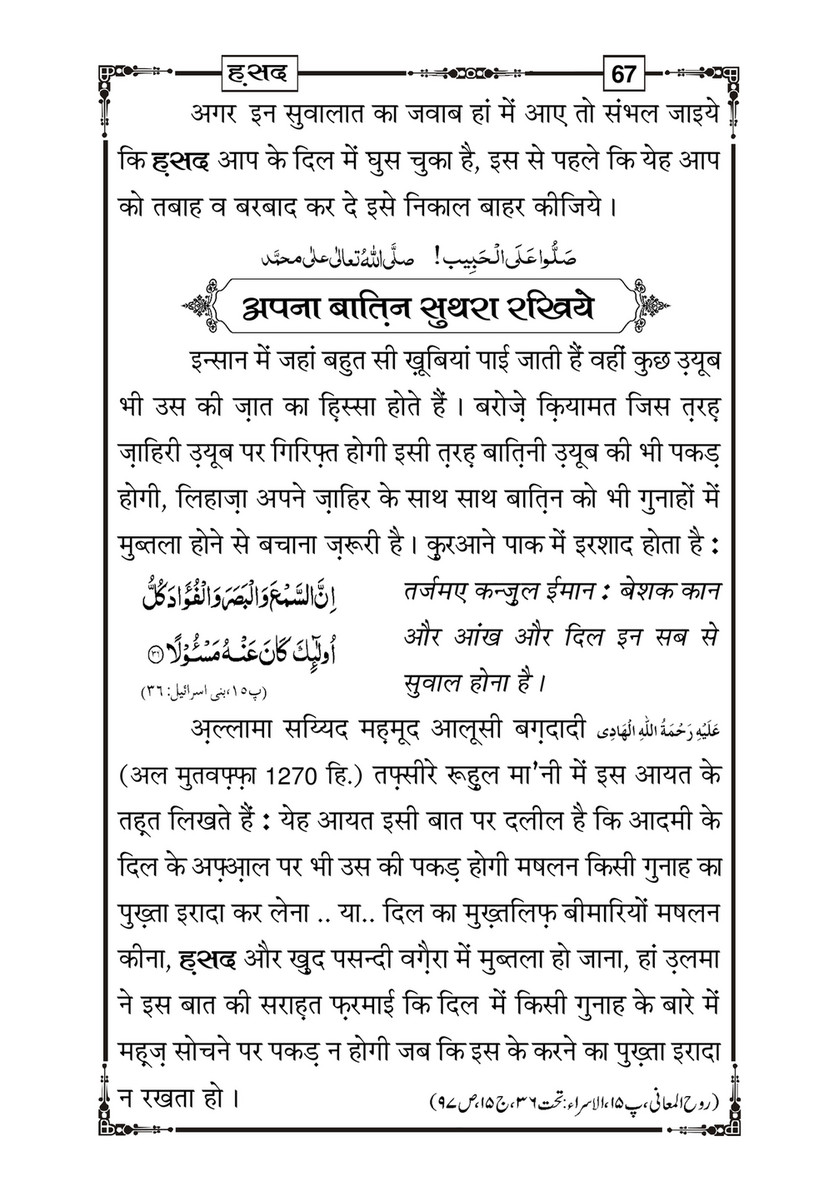 ह़सद
67
अगर इन सुवालात का जवाब हां में आए तो संभल जाइये
कि ह़सद आप के दिल में घुस चुका है, इस से पहले कि येह आप
को तबाह व बरबाद कर दे इसे निकाल बाहर कीजिये ।
صَلُّوا عَلَى الْحَبِيب! صلَّى اللهُ تعالٰى علٰى محمَّد
अपना बात़िन सुथरा रखिये
इन्सान में जहां बहुत सी ख़ूबियां पाई जाती हैं वहीं कुछ उ़यूब
भी उस की ज़ात का ह़िस्सा होते हैं । बरोज़े क़ियामत जिस त़रह़
ज़ाहिरी उ़यूब पर गिरिफ़्त होगी इसी त़रह़ बात़िनी उ़यूब की भी पकड़
होगी, लिहाज़ा अपने ज़ाहिर के साथ साथ बात़िन को भी गुनाहों में
मुब्तला होने से बचाना ज़रूरी है । कु़रआने पाक में इरशाद होता है :
اِنَّ السَّمْعَ وَالْبَصَرَ وَالْفُؤَادَ كُلُّ
اُولٰٓئِكَ كَانَ عَنْهُ مَسْـُٔوْلًا ﴿۳۶﴾
(پ۱۵،بنی اسرائیل:۳۶)
तर्जमए कन्ज़ुल ईमान : बेशक कान
और आंख और दिल इन सब से
सुवाल होना है ।
अ़ल्लामा सय्यिद मह़मूद आलूसी बग़दादी عَلَيْهِ رَحْمَةُ اللهِ الْهَادِى
(अल मुतवफ़्फ़ा 1270 हि.) तफ़्सीरे रूह़ुल मा'नी में इस आयत के
तह़्त लिखते हैं : येह आयत इसी बात पर दलील है कि आदमी के
दिल के अफ़्आ़ल पर भी उस की पकड़ होगी मषलन किसी गुनाह का
पुख़्ता इरादा कर लेना .. या.. दिल का मुख़्तलिफ़ बीमारियों मषलन
कीना, ह़सद और ख़ुद पसन्दी वग़ैरा में मुब्तला हो जाना, हां उ़लमा
ने इस बात की सराह़त फ़रमाई कि दिल में किसी गुनाह के बारे में
मह़्ज़ सोचने पर पकड़ न होगी जब कि इस के करने का पुख़्ता इरादा
न रखता हो ।
(روح المعانی،پ۱۵،الاسراء:تحت۳۶،ج۱۵،ص۹۷)